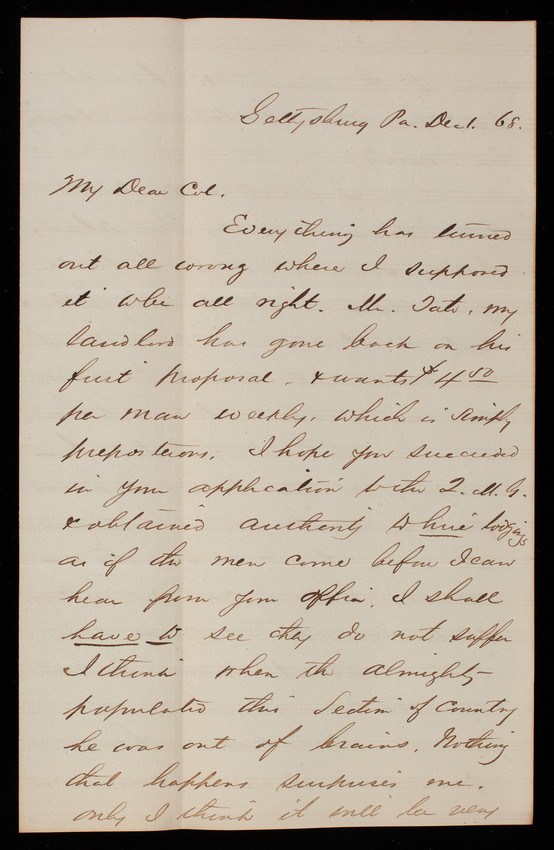 Gettysburg Pa. Dec 1. 68.
My Dear Col.
Everything has turned
out all wrong where I supposed
it wd be all right. Mr. Tate, my
landlord has gone back on his
first proposal. & wants $4 50
per man weekly, which is simply
preposterous. I hope you succeeded
in your application to the Q. M. G.
& obtained authority to hire lodgings
as if the men come before I can
hear from your office, I shall
have to see they do not suffer
I think when the almighty
populated this Section of Country
he was out of brains. Nothing
that happens surprises me.
only I think it will be very